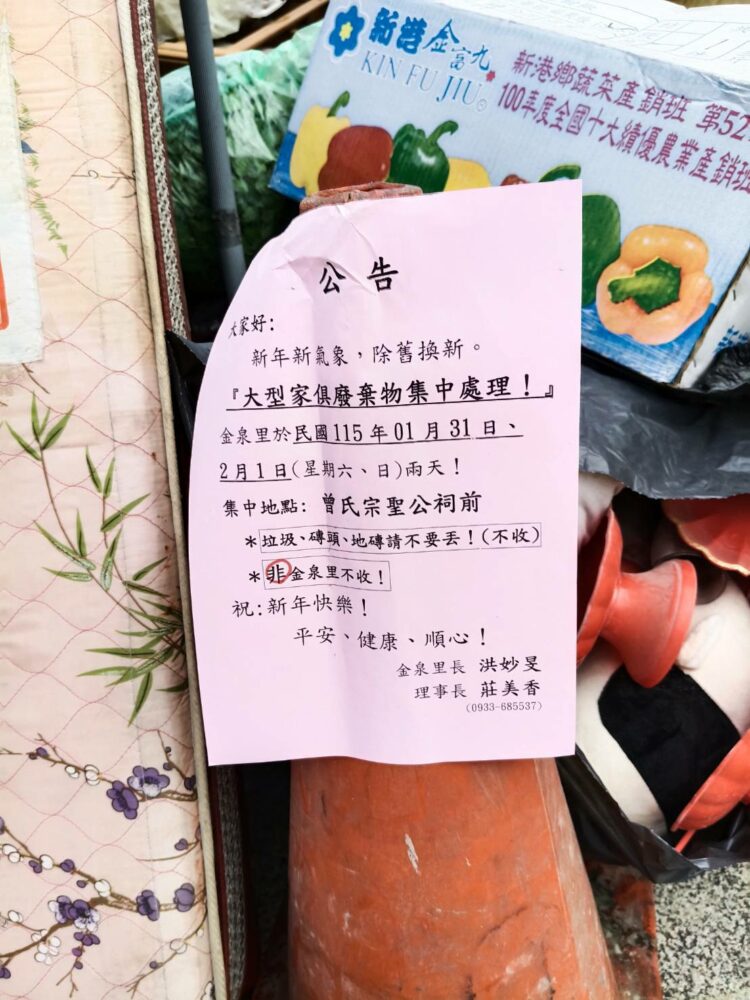 新港金富九
KIN FU JIU
新港鄉蔬菜產銷班 第52
100年度全國十大績優農業產銷班
公告
大家好:
新年新氣象，除舊換新。
『大型家俱廢棄物集中處理！』
金泉里於民國115年01月31日、
2月1日(星期六、日)兩天！
集中地點: 曾氏宗聖公祠前
*垃圾、磚頭、地磚請不要丟！(不收)
*非金泉里不收！
祝:新年快樂！
平安、健康、順心！
金泉里長 洪妙旻
理事長 莊美香
(0933-685537)